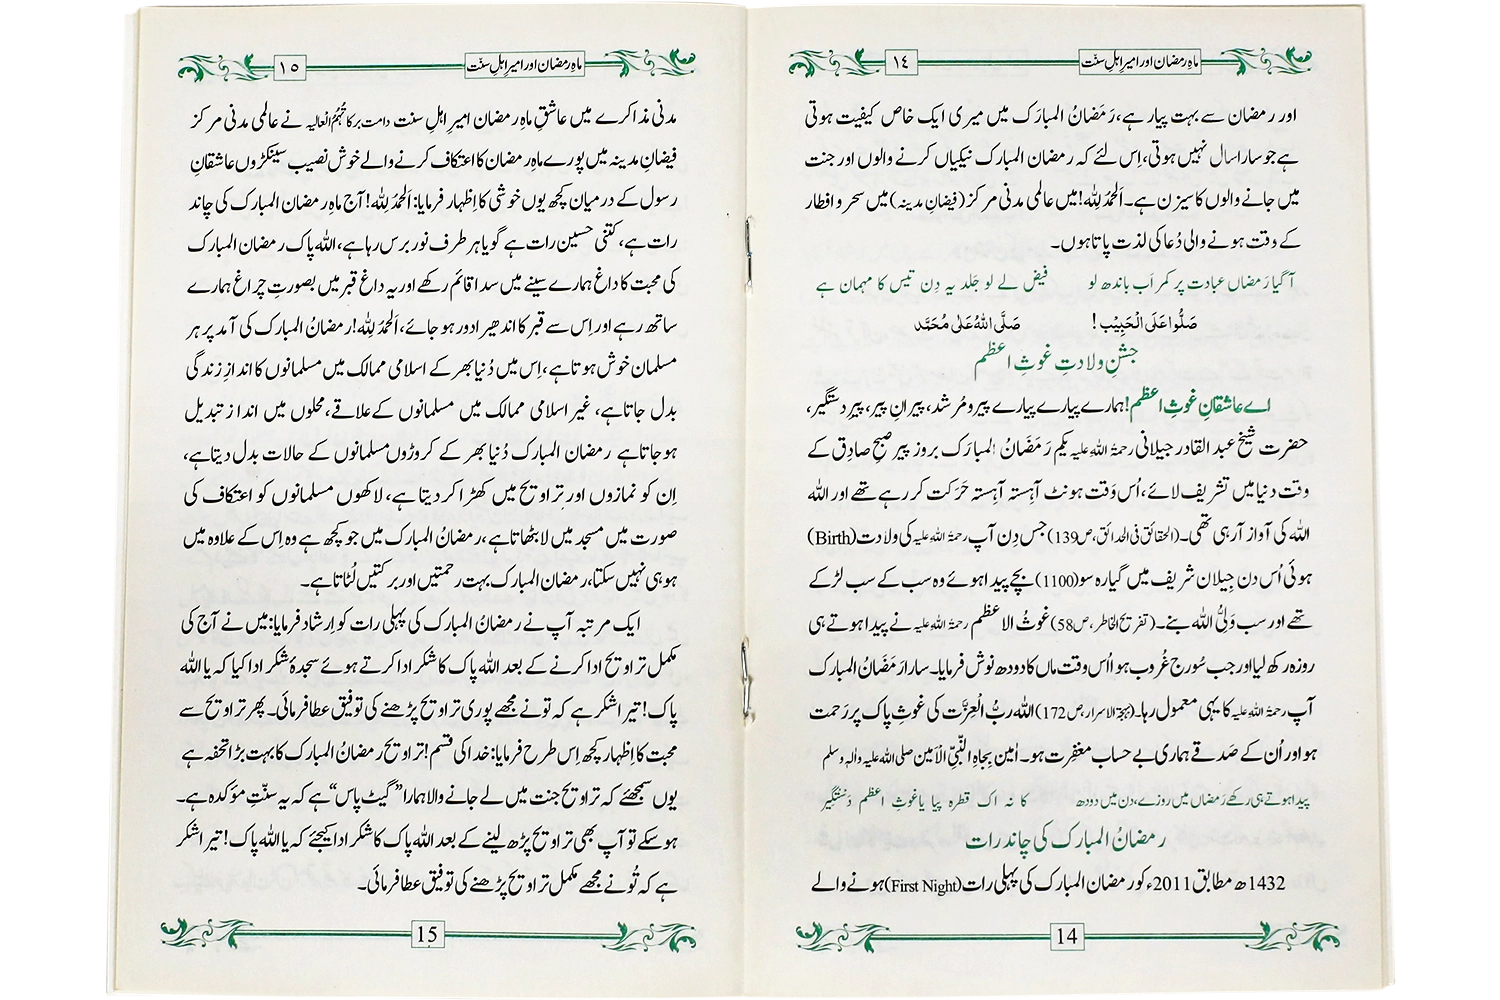 ماہِ رمضان اور امیرِ اہلِ سنّت
١٤
اور رمضان سے بہت پیار ہے، رَمَضانُ المبارَک میں میری ایک خاص کیفیت ہوتی
ہے جو سارا سال نہیں ہوتی، اِس لئے کہ رمضان المبارک نیکیاں کرنے والوں اور جنت
میں جانے والوں کا سیزن ہے۔ اَلحمدُ لِلّٰہ! میں عالمی مدنی مرکز (فیضانِ مدینہ) میں سحر و افطار
کے وقت ہونے والی دُعا کی لذت پاتا ہوں۔
آگیا رَمضاں عبادت پر کمر اَب باندھ لو فیض لے لو جَلد یہ دِن تیس کا مہمان ہے
صَلُّوا عَلَی الْحَبِیْب! صَلَّی اللہُ عَلٰی مُحَمَّد
جشنِ ولادتِ غوثِ اعظم
اے عاشقانِ غوثِ اعظم! ہمارے پیارے پیارے پیر و مُرشد، پیرانِ پیر، پیرِ دستگیر،
حضرت شیخ عبد القادر جیلانی رحمۃُ اللہِ علیہ یکم رَمَضَانُ المبارَک بروز پیر صبحِ صادِق کے
وقت دنیا میں تشریف لائے، اُس وَقت ہونٹ آہستہ آہستہ حَرَکت کر رہے تھے اور اللہ
اللہ کی آواز آرہی تھی۔ (الحقائق فی الحدائق، ص139) جس دِن آپ رحمۃُ اللہِ علیہ کی ولادت (Birth)
ہوئی اُس دن جِیلان شریف میں گیارہ سو (1100) بچّے پیدا ہوئے وہ سب کے سب لڑکے
تھے اور سب وَلِیُّ اللہ بنے۔ (تفریح الخاطر، ص58) غوثُ الاعظم رحمۃُ اللہِ علیہ نے پیدا ہوتے ہی
روزہ رکھ لیا اور جب سُورج غُروب ہوا اُس وقت ماں کا دودھ نوش فرمایا۔ سارا رَمَضَانُ المبارک
آپ رحمۃُ اللہِ علیہ کا یہی معمول رہا۔ (بہجۃ الاسرار، ص172) اللہ ربُّ الْعِزَّت کی غوثِ پاک پر رَحمت
ہو اور اُن کے صَدقے ہماری بے حساب مغفِرت ہو۔ اٰمین بِجاہِ النَّبِیِّ الْاَمین صلی اللہ علیہ واٰلہٖ وسلم
پیدا ہوتے ہی رکھے رَمضاں میں روزے، دن میں دودھ کا نہ اک قطرہ پیا یا غوثِ اعظم دَستگیر
رمضانُ المبارک کی چاند رات
1432ھ مطابق 2011ء کو رمضان المبارک کی پہلی رات (First Night) ہونے والے
14
ماہِ رمضان اور امیرِ اہلِ سنّت
١٥
مدنی مذاکرے میں عاشقِ ماہِ رمضان امیرِ اہلِ سنت دامت برکاتہُمُ العالیہ نے عالمی مدنی مرکز
فیضانِ مدینہ میں پورے ماہِ رمضان کا اعتکاف کرنے والے خوش نصیب سینکڑوں عاشقانِ
رسول کے درمیان کچھ یوں خوشی کا اِظہار فرمایا: اَلحمدُ لِلّٰہ! آج ماہِ رمضان المبارک کی چاند
رات ہے، کتنی حسین رات ہے گویا ہر طرف نور برس رہا ہے، اللہ پاک رمضان المبارک
کی محبت کا داغ ہمارے سینے میں سدا قائم رکھے اور یہ داغ قبر میں بصورتِ چراغ ہمارے
ساتھ رہے اور اِس سے قبر کا اندھیرا دور ہو جائے، اَلحمدُ لِلّٰہ! رمضانُ المبارک کی آمد پر ہر
مسلمان خوش ہوتا ہے، اِس میں دُنیا بھر کے اسلامی ممالک میں مسلمانوں کا اندازِ زندگی
بدل جاتا ہے، غیر اسلامی ممالک میں مسلمانوں کے علاقے، محلوں میں انداز تبدیل
ہو جاتا ہے رمضان المبارک دُنیا بھر کے کروڑوں مسلمانوں کے حالات بدل دیتا ہے،
اِن کو نمازوں اور تراویح میں کھڑا کر دیتا ہے، لاکھوں مسلمانوں کو اعتکاف کی
صورت میں مسجد میں لا بٹھاتا ہے، رمضانُ المبارک میں جو کچھ ہے وہ اِس کے علاوہ میں
ہو ہی نہیں سکتا، رمضان المبارک بہت رحمتیں اور برکتیں لُٹاتا ہے۔
ایک مرتبہ آپ نے رمضانُ المبارک کی پہلی رات کو اِرشاد فرمایا: میں نے آج کی
مکمل تراویح ادا کرنے کے بعد اللہ پاک کا شکر ادا کرتے ہوئے سجدۂ شکر ادا کیا کہ یا اللہ
پاک! تیرا شکر ہے کہ تو نے مجھے پوری تراویح پڑھنے کی توفیق عطا فرمائی۔ پھر تراویح سے
محبت کا اِظہار کچھ اِس طرح فرمایا: خدا کی قسم! تراویح رمضانُ المبارک کا بہت بڑا تحفہ ہے
یوں سمجھئے کہ تراویح جنت میں لے جانے والا ہمارا ”گیٹ پاس“ ہے کہ یہ سنّتِ مؤکدہ ہے۔
ہو سکے تو آپ بھی تراویح پڑھ لینے کے بعد اللہ پاک کا شکر ادا کیجئے کہ یا اللہ پاک! تیرا شکر
ہے کہ تُو نے مجھے مکمل تراویح پڑھنے کی توفیق عطا فرمائی۔
15